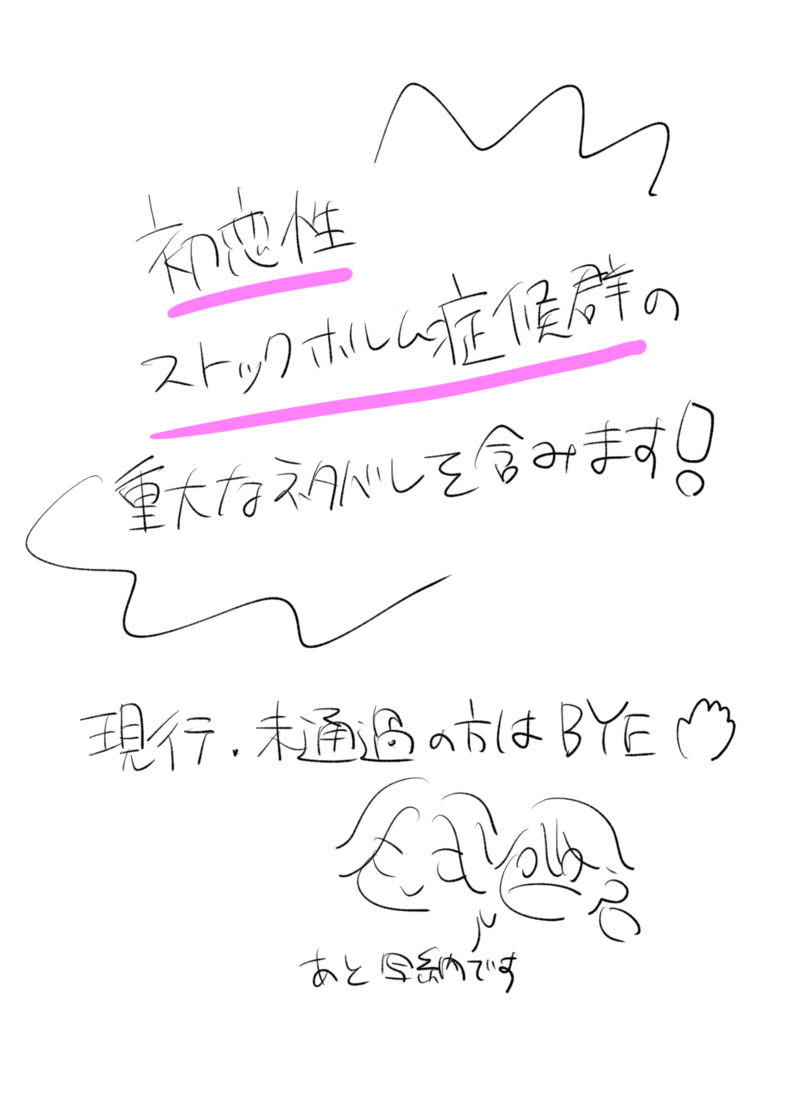 初恋性
ストックホルム症候群の
重大なネタバレを含みます!
現行.未通過の方はBYE
あと口納です